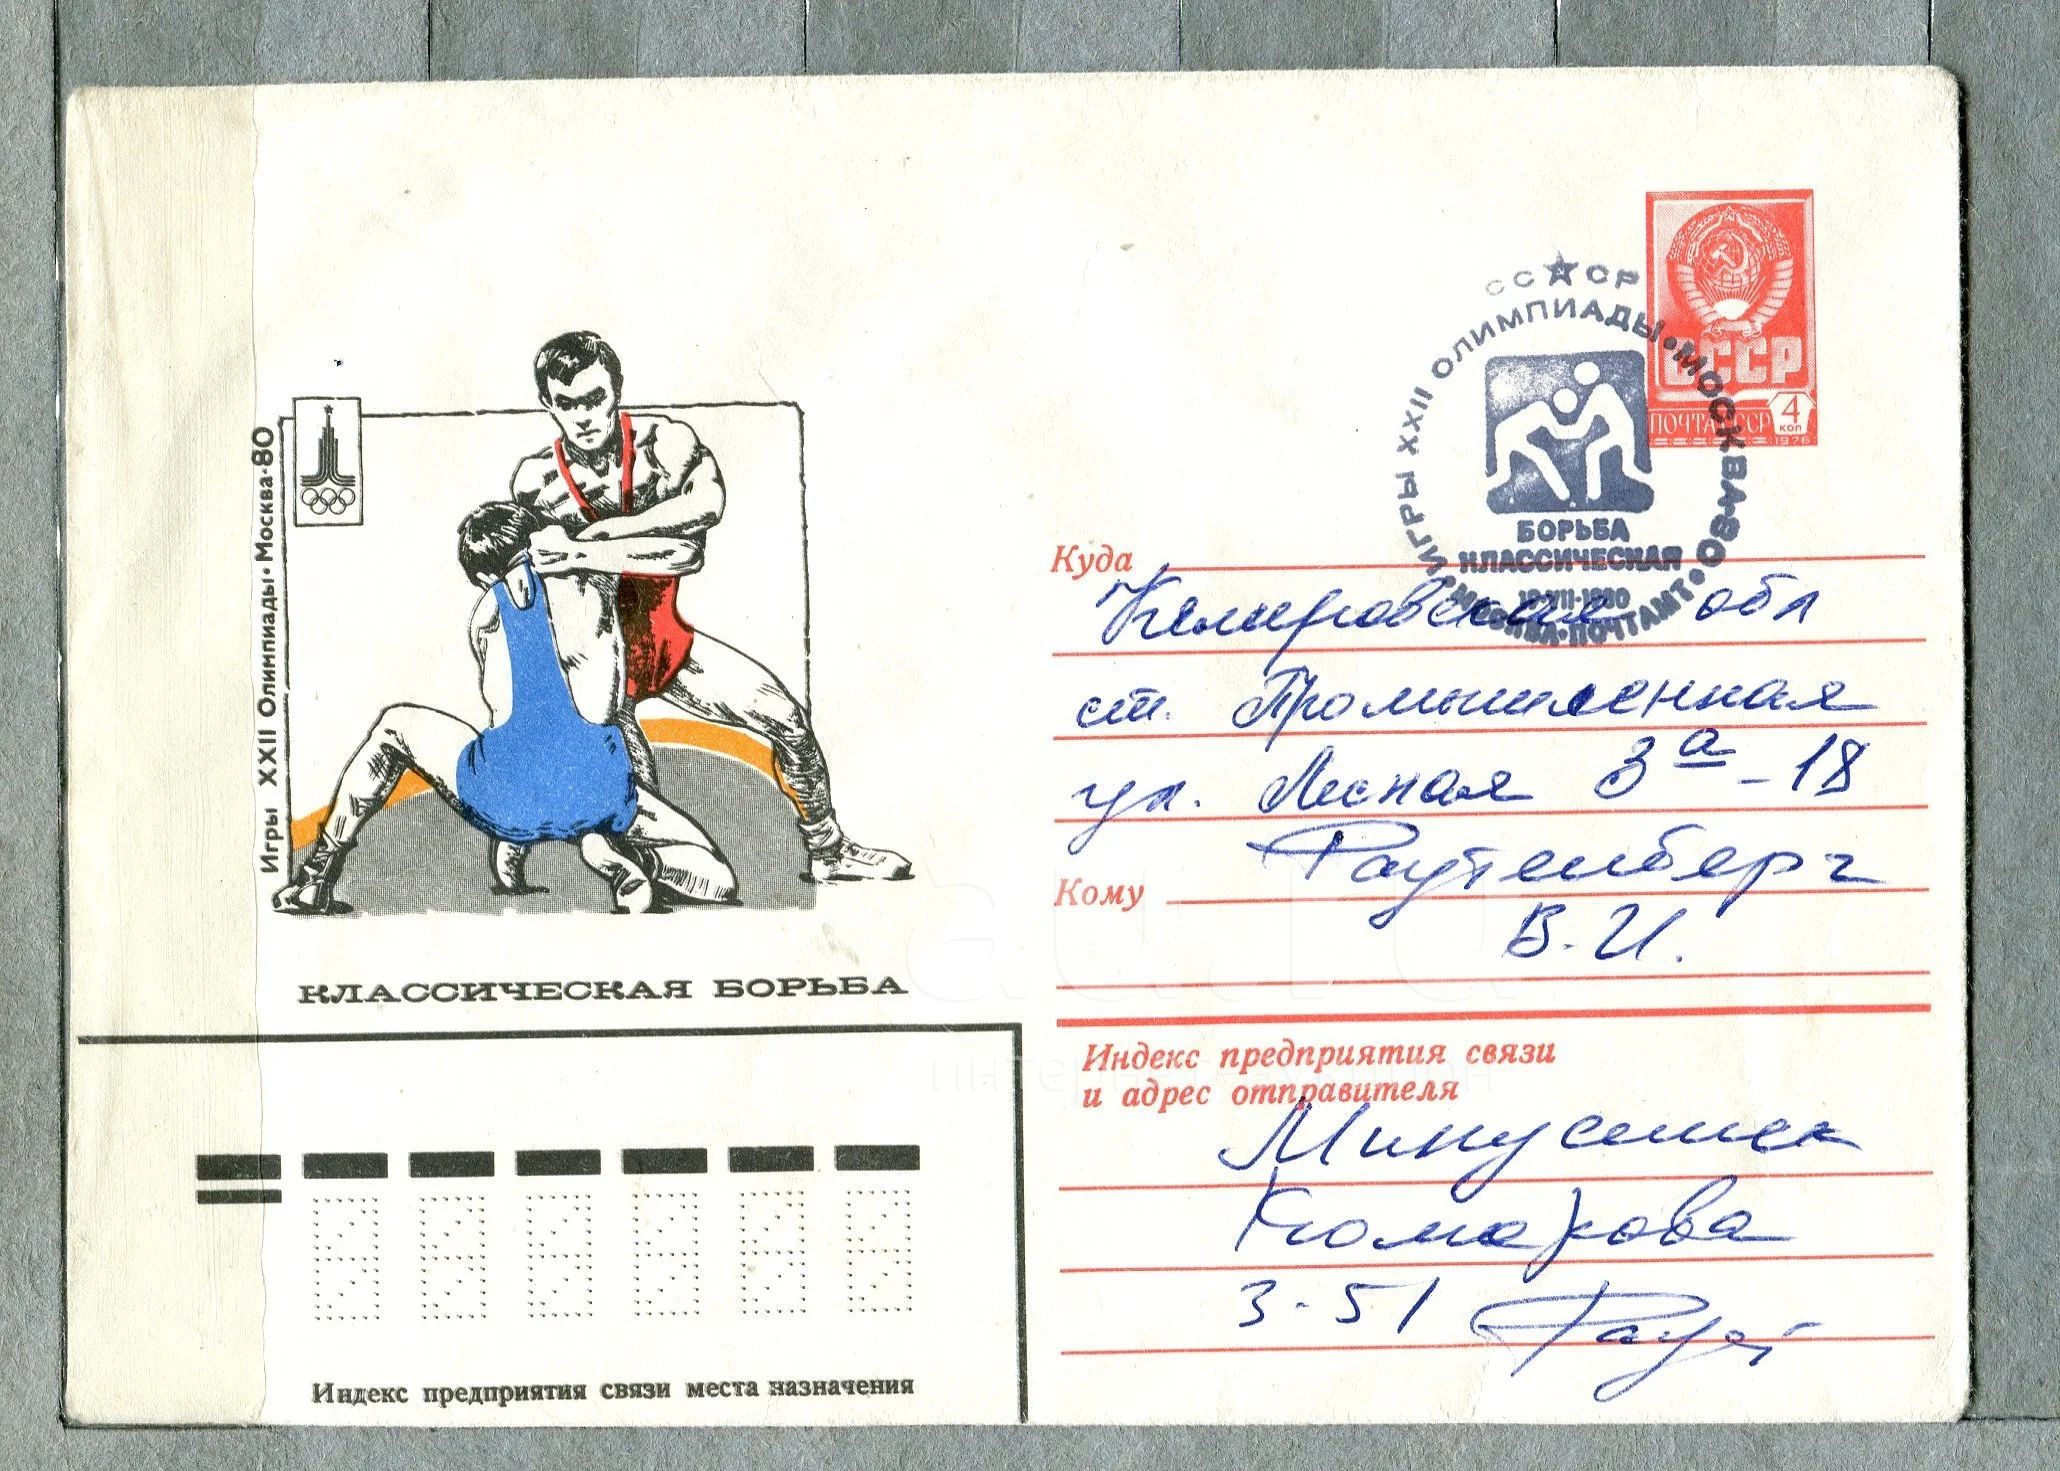 Игры XXII Олимпиады • Москва-80
КЛАССИЧЕСКАЯ БОРЬБА
СССР
ПОЧТА СССР
4
коп
1976
СССР
ИГРЫ XXII ОЛИМПИАДЫ • МОСКВА-80
БОРЬБА
КЛАССИЧЕСКАЯ
МОСКВА • ПОЧТАМТ
Куда
Кемеровская обл
ст. Промышленная
ул. Лесная 3а-18
Кому
Раутенберг
В. И.
Индекс предприятия связи
и адрес отправителя
Минусинск
Комарова
3-51
Индекс предприятия связи места назначения
au.ru